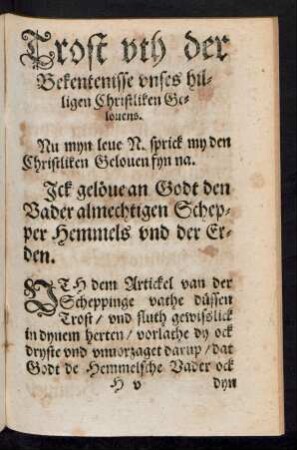 Trost vth der
Bekentenisse vnses hil-
ligen Christliken Ge-
louens.
Nu myn leue N. sprick my den
Christliken Gelouen fyn na.
Jck gelöue an Godt den
Vader almechtigen Schep-
per Hemmels vnd der Er-
den.
VTH dem Artickel van der
Scheppinge vathe düssen
Trost / vnd sluth gewisslick
in dynem herten / vorlathe dy ock
dryste vnd vnuorzaget darup / dat
Godt de Hemmelsche Vader ock
H v dyn